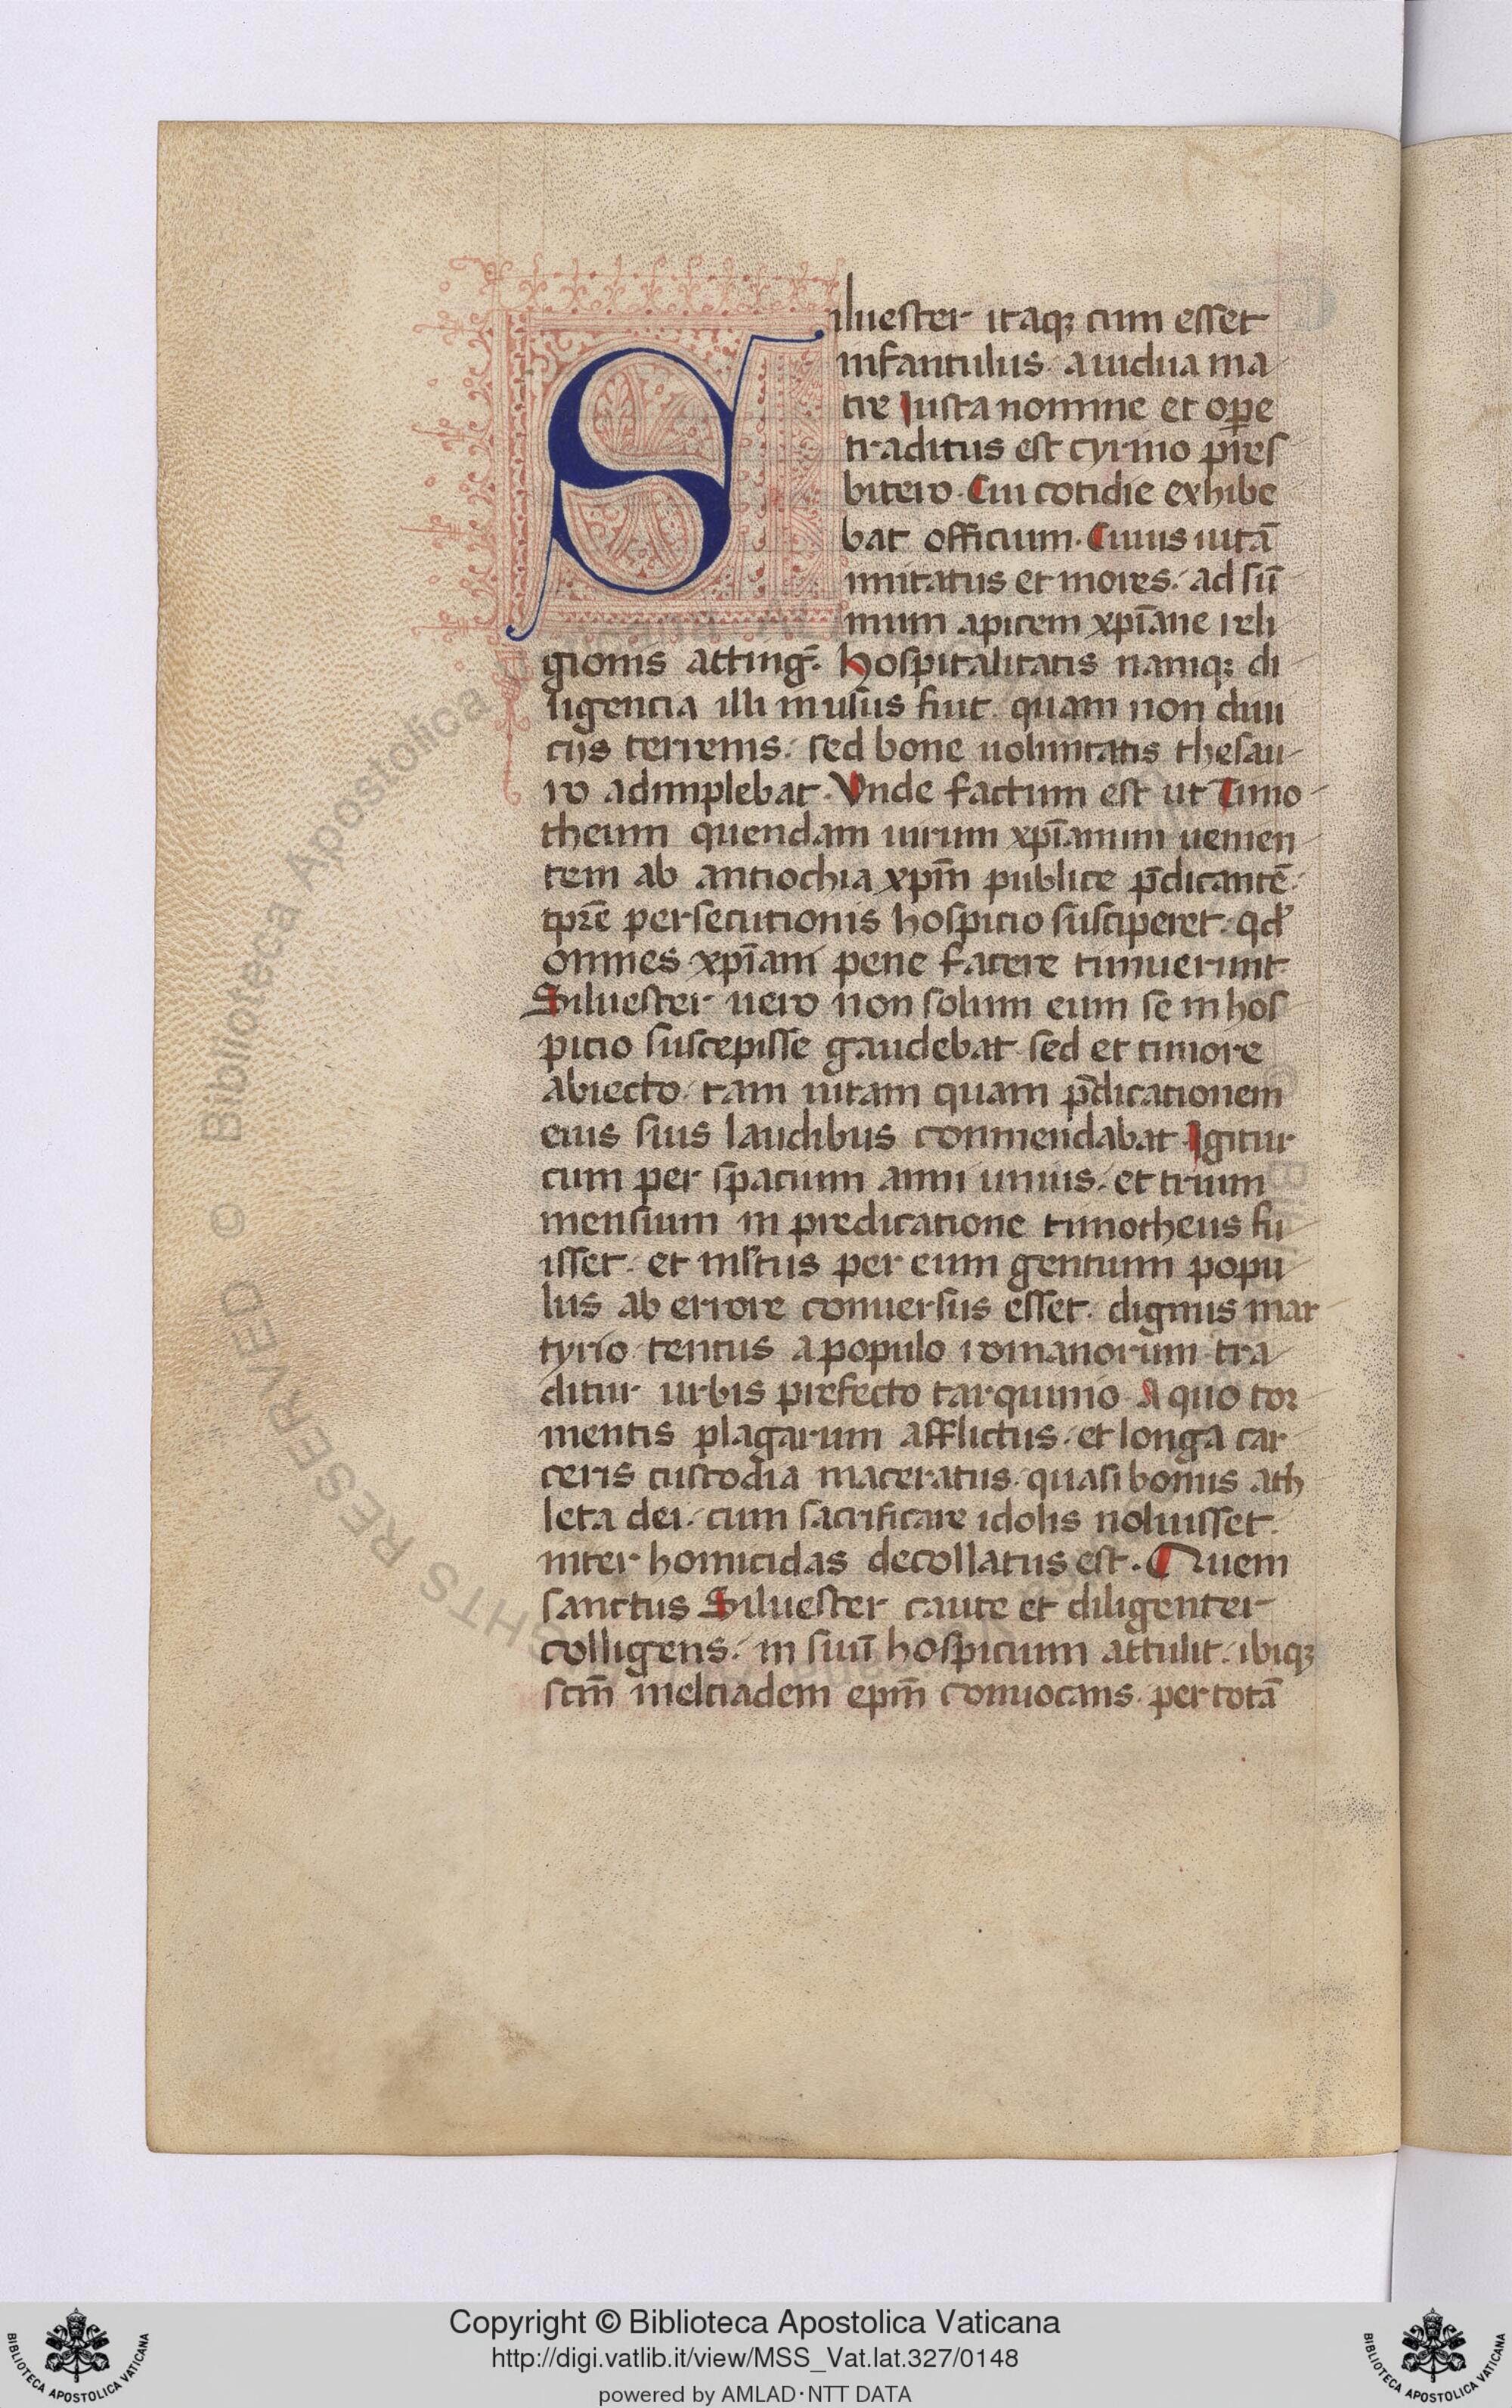 Siluester itaqꝫ cum esset
infantulus. a uidua ma
tre Iusta nomine et ope
traditus est cyrino pres
bitero. Cui cotidie exhibe
bat officium. Cuius uitā
imitatus et mores. ad sū
mum apicem xp̄iane reli
gionis attinḡ. hospitalitatis namqꝫ di
ligencia illi in usus fuit. quam non diui
ciis terrenis. sed bone uoluntatis thesau
ro adimplebat. Vnde factum est ut Timo
theum quendam uirum xp̄ianum uenien
tem ab antiochia xp̄m publice p̄dicantē.
tp̄re persecutionis hospicio susciperet. qd'
omnes xp̄iani pene facere timuerunt.
Siluester uero non solum eum se in hos
picio suscepisse gaudebat. sed et timore
abiecto. tam uitam quam p̄dicationem
eius suis laudibus conmendabat. Igitur
cum per spacium anni unius. et trium
mensium in predicatione timotheus fu
isset. et m̄ltus per eum gentium popu
lus ab errore conuersus esset. dignus mar
tyrio tentus a populo romanorum tra
ditur urbis prefecto tarquinio. A quo tor
mentis plagarum afflictus. et longa car
ceris custodia maceratus. quasi bonus ath
leta dei. cum sacrificare idolis noluisset.
inter homicidas decollatus est. Quem
sanctus Siluester caute et diligenter
colligens. in suū hospicium attulit. ibiqꝫ
sc̄m melciadem ep̄m conuocans. per totā
Copyright © Biblioteca Apostolica Vaticana
http://digi.vatlib.it/view/MSS_Vat.lat.327/0148
powered by AMLAD·NTT DATA
BIBLIOTECA APOSTOLICA VATICANA
BIBLIOTECA APOSTOLICA VATICANA